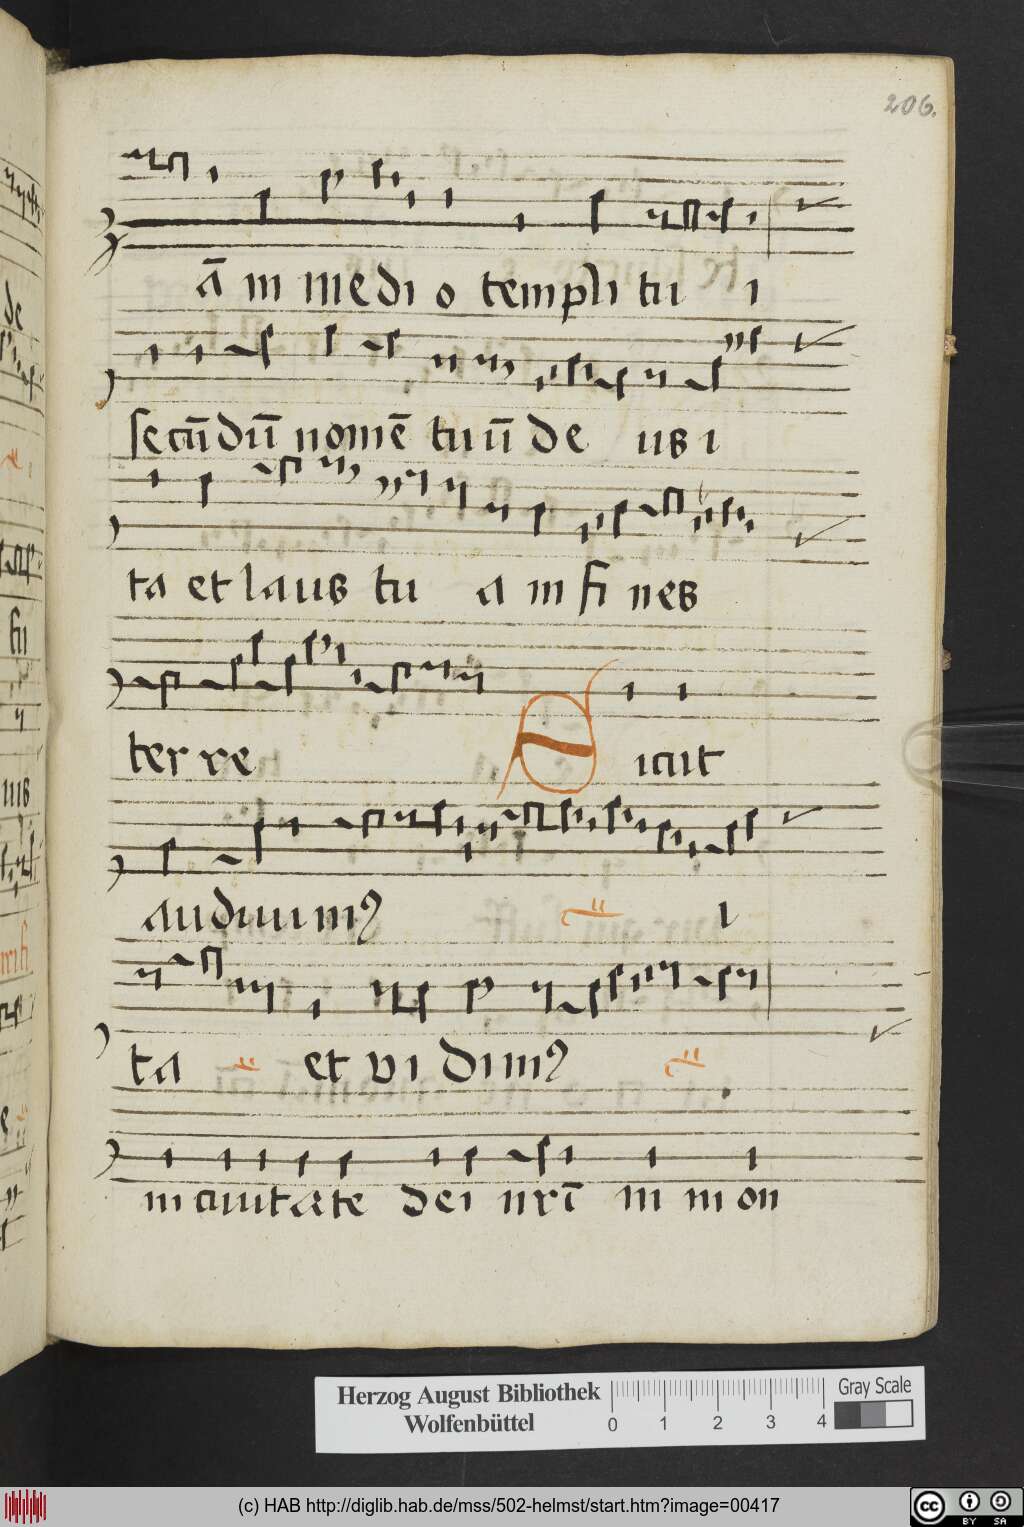 206.
ā in medi o templi tu i
secūdū nomē tuū de us i
ta et laus tu a in fi nes
terre Sicut
audiuim9 i
ta et vi dim9
in ciuitate dei nrī in mon
Herzog August Bibliothek
Wolfenbüttel
0 1 2 3 4
Gray Scale
(c) HAB http://diglib.hab.de/mss/502-helmst/start.htm?image=00417
cc BY SA